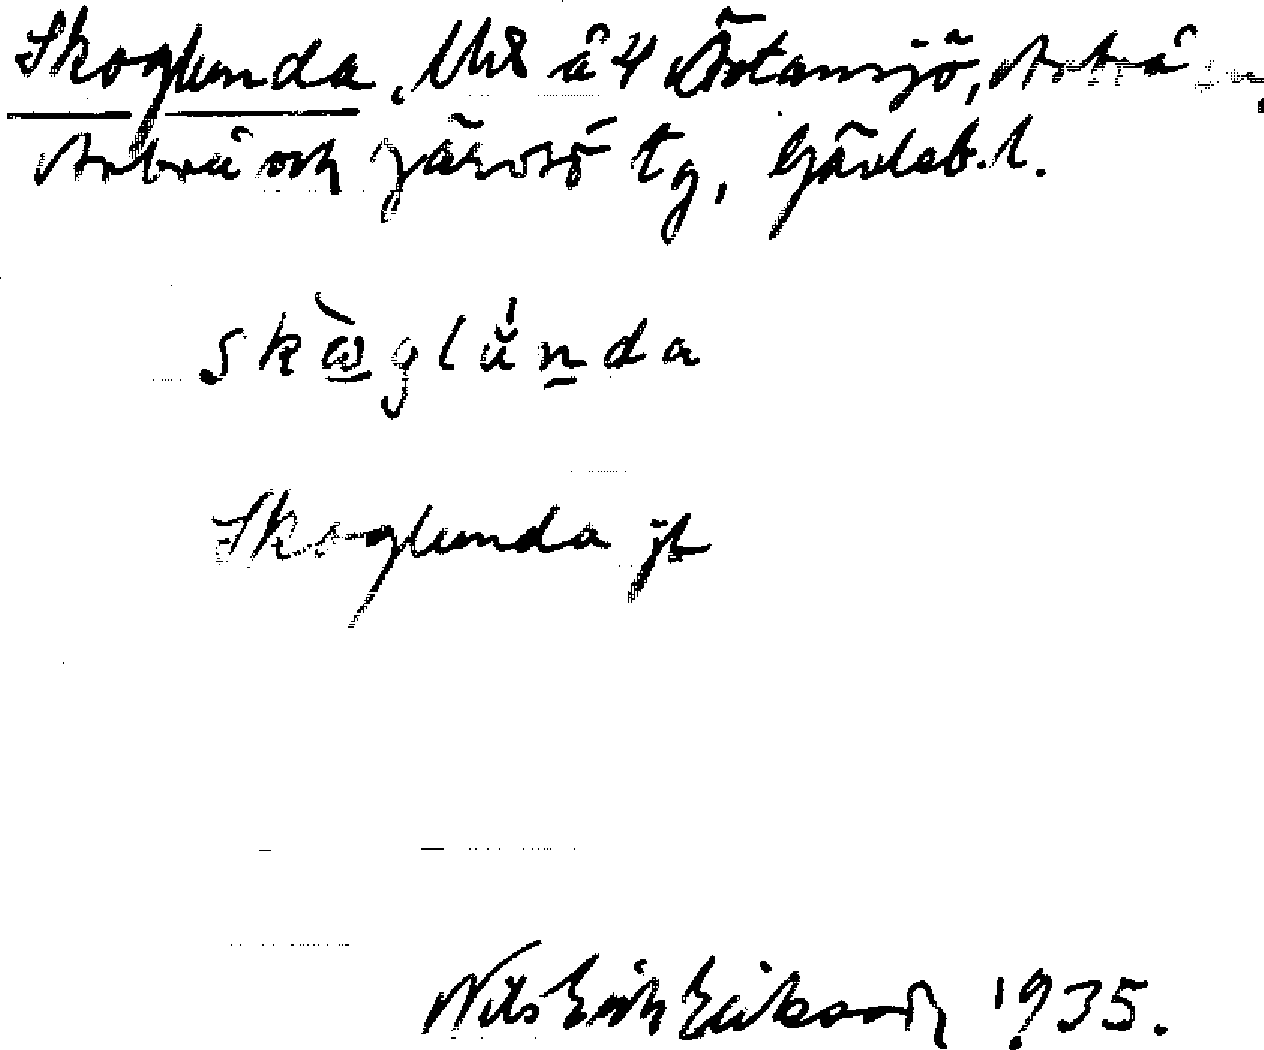 Skoglunda, Uts å 4 Östansjö, Arbrå sn,
Arbrå och Järvsö tg, Gävleb. l.
skὼglŭnda
Skoglunda jb
Nils Erik Eriksson 1935.